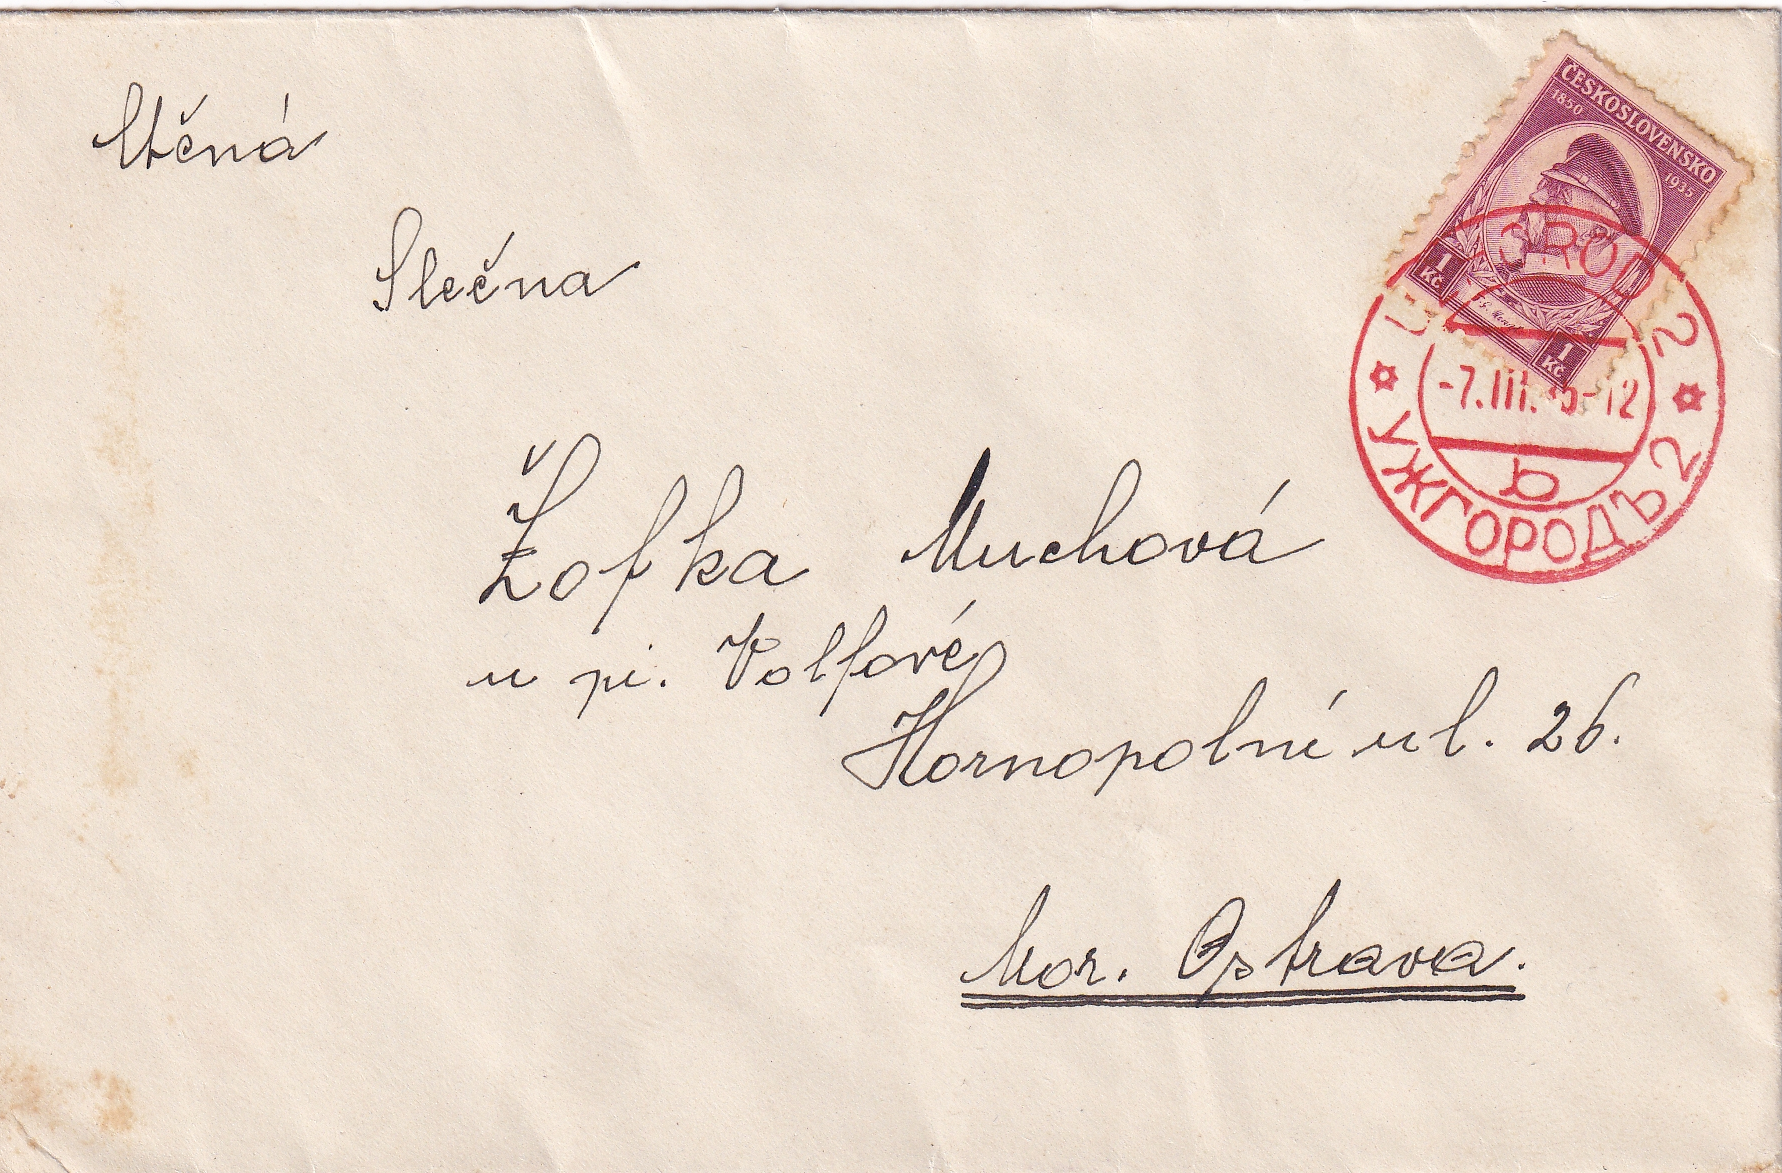 Ctěná
Slečna
Žofka Muchová
u pí. Volfové
Hornopolní ul. 26.
Mor. Ostrava.
ČESKOSLOVENSKO
1850 1935
1 Kč
1 Kč
2
-7.III. -12
b
УЖГОРОДЪ 2